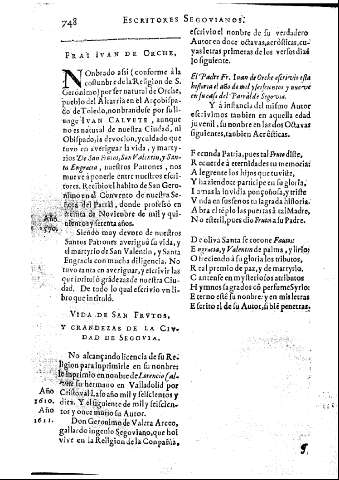 748
ESCRITORES SEGOVIANOS.
FRAI IVAN DE ORCHE.
NOnbrado asi (conforme à la
costunbre de la Religion de S.
Geronimo) por ser natural de Orche,
pueblo del Alcarria en el Arçobispa-
do de Toledo, nonbrandose por su li-
nage IVAN CALVETE, aunque
no es natural de nuestra Ciudad, ni
Obispado, la devocion, y cuidado que
tuvo en averiguar la vida, y marty-
rios De San Frutos, San Valentin, y San-
ta Engracia, nuestros Patrones, nos
mueve à ponerle entre nuestros escri-
tores. Recibio el habito de San Gero-
nimo en el Convento de nuestra Se-
ñora del Parral, donde professò en
treinta de Noviembre de mil y qui-
nientos y setenta años.
Año
1570.
Siendo muy devoto de nuestros
Santos Patrones averiguò su vida, y
el martyrio de San Valentin, y Santa
Engracia con mucha diligencia. No
tuvo tanta en averiguar, y escrivir las
que intitulò grãdezas de nuestra Ciu-
dad. De todo lo qual escrivio vn li-
bro que intitulò.
VIDA DE SAN FRVTOS,
Y GRANDEZAS DE LA CIV-
DAD DE SEGOVIA.
No alcançando licencia de su Re-
ligion para inprimirle en su nonbre;
le inprimio en nonbre de Lorencio Cal-
vete su hermano en Valladolid por
Cristoval Laso año mil y seiscientos y
diez. Y el siguiente de mil y seiscien-
tos y once murio su Autor.
Año
1610.
Año
1611.
Don Geronimo de Valera Arceo,
gallardo ingenio Segoviano, que hoi
vive en la Religion de la Conpañia,
escrivio el nonbre de su verdadero
Autor en doce octavas, acrósticas, cu-
yas letras primeras de los versos diã
lo siguiente.
El Padre Fr. Ivan de Orche escrivio esta
historia el año de mil y seiscientos y nueve
en su casa del Parral de Segovia.
Y à instancia del mismo Autor
escrivimos tanbien en aquella edad
juvenil, su nonbre en las dos Octavas
siguientes, tanbien Acrósticas.
Fecunda Patria, pues tal Fruto diste,
Recuerde à eternidades su memoria:
Alegrente los hijos que tuviste,
Y haziendote participe en su gloria,
Iamas la invidia ponçoñosa, y triste
Vivida en sus senos la sagrada historia.
Abra el tẽplo las puertas à tal Madre,
No esteril, pues dio Fruto à su Padre.
De oliva Santa se corone Frutos
Engracia, y Valentin de palma, y lirio:
Ofreciendo à su gloria los tributos,
Real premio de paz, y de martyrio.
Cantense en mysterios los atributos
Hymnos sagrados cõ perfume Syrio:
Eterno estè su nonbre; y en mis letras
Escrito el de su Autor, si biẽ penetras.